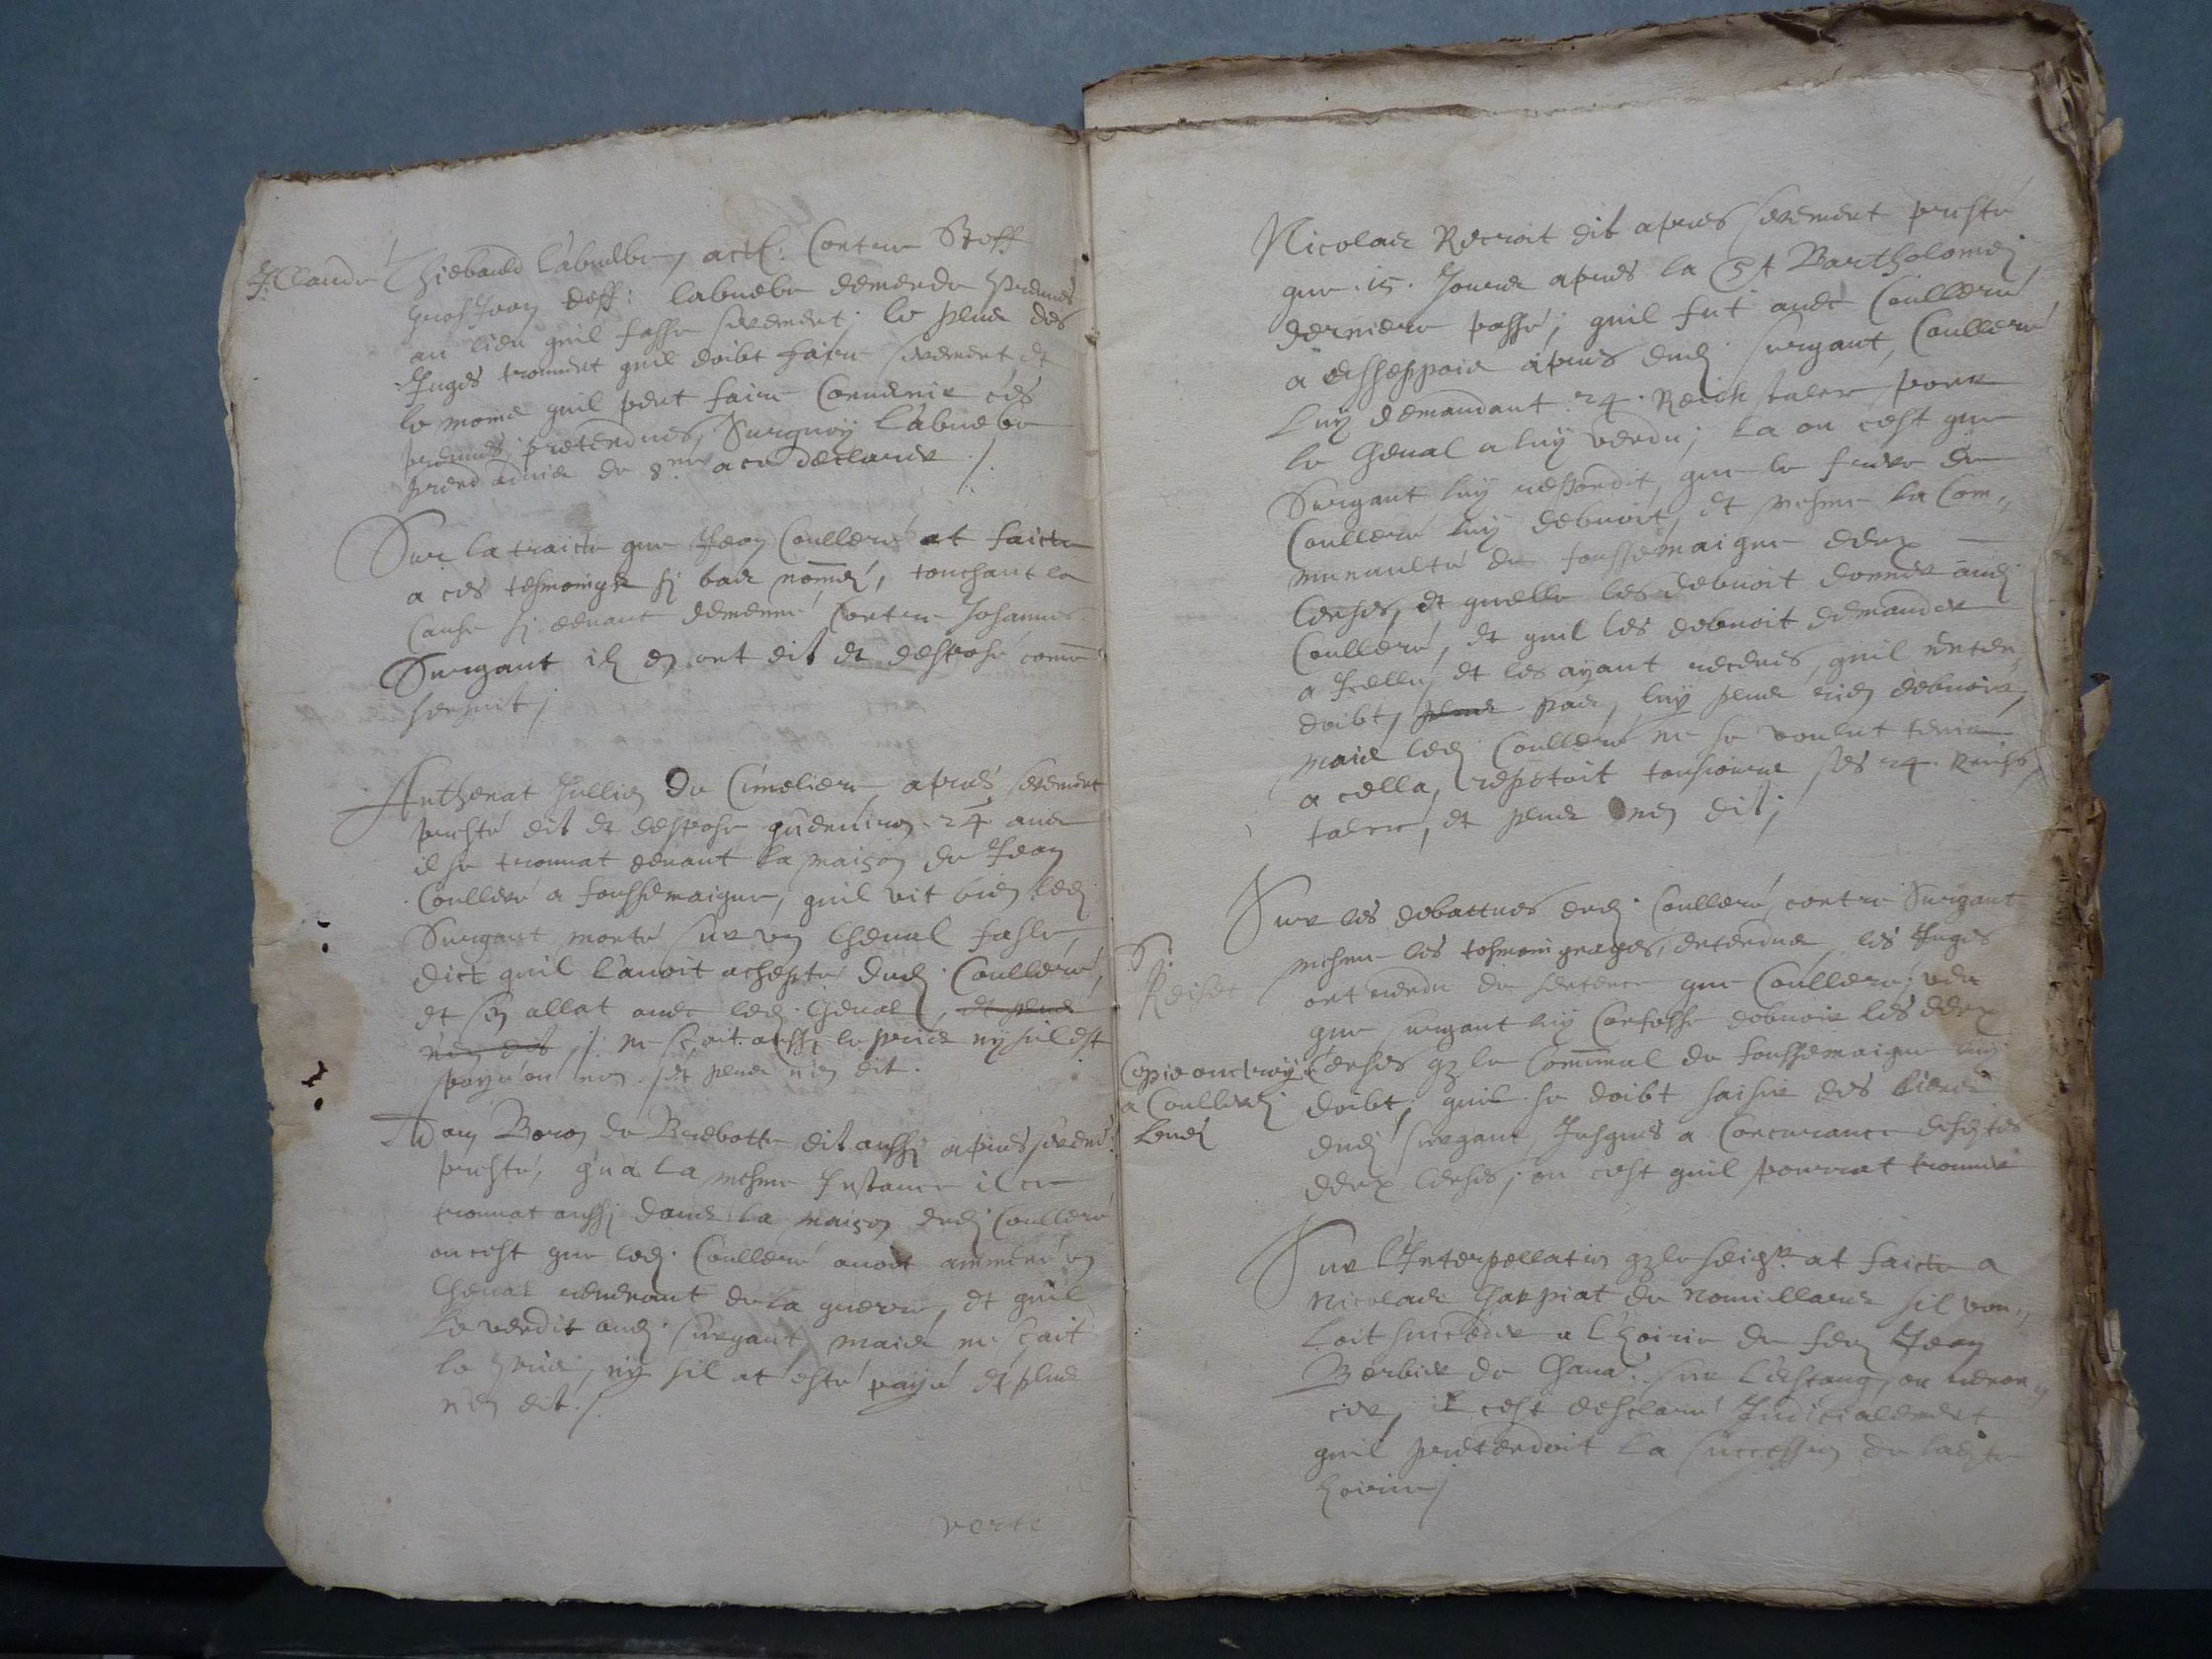 J: Claude
Thiebauld Labuebe, act: Contre Steff
GrosJean deff: Labuebe demende preuues
au lieu quil fasse serement; le plus des
Juges treuuent quil doibt faire serement et
le moins quil peut faire Conuenir ces
preuues pretendues, Surquoy Labuebe
prend aduis de 8.ne a ce declarer ./.
Sur la traicte que Jean Coulleré at faicte
a ces tesmoings sy bas nommé, touchant la
Cause sy deuant demenné Contre Johannes
Surgant ilz en ont dit et desposé comme
sensuit /
Anthenat Jullien de Cunelière, apres serement
presté dit et despose quenuiron 24 ans
il se trouuat deuant la maison de Jean
Coulleré a foussemaigne, quil vit bien led
Surgant monté sur vn Cheual fasle,
dict quil lauoit achepté dud. Coulleré,
et sen allat auec led. Cheual, et plus
rien dit, /. ne sçait aussy le pris ny sil est
payé ou non. et plus rien dit.
Adam Boron de Brebotte dit aussy apres serem:
presté, qua la mesme Instance il ce
trouuat aussy dans la maison dud Coulleré
ou cest que led. Coulleré auoit ammené vn
Cheual reuenant de la guerre, et quil
le vendit aud. surgant, mais ne sçait
le pris, ny sil at esté payé et plus
rien dit. /.
verte
Nicolas Recroit dit apres serement presté
que .15. Jours apres la St Bartholomey
derniere passé, quil fut auec Coulleré
a apres dud. surgant, Coulleré
Luy demandant .24. Reichstalers pour
le Cheual a luy vendu; la ou cest que
Surgant luy respondit, que le frere de
Coulleré luy debuoit, et mesme la Com„
munaulté de foussemaigne deux
Censes, et quelle les debuoit donner aud
Coulleré, et quil les debuoit demander
a Icelle, et les ayant receues, quil nenten„
doibt, plus pas, luy plus rien debuoir,
mais led. Coulleré ne se voulut tenir
a cella, repetoit tousiours ses 24. Reichs„
talers, et plus rien dit;
Sur les debattues dud. Coulleré contre Surgant
mesme les tesmoingnages, entendus, les Juges
ont rendu de sentence que Coulleré; veu
que surgant luy Confesse debuoir les deux
Censes q le Commual de foussemaigne luy
doibt; quil se doibt saisir des biens
dud surgant, Jusques a Concurance desdites
deux censes; ou cest quil pourrat trouuer
S:
Reiset
Copie ouctroyé
a Coulleré
Leués
Sur l'Interpellation q le seigr. at faicte a
Nicolas Charpiat de Nouillars sil vou„
loit succeder a l'hoirie de feu Jean
Berbier de Chaua: sur Lestang, ou renon„
cer, il cest desclairé Judicialement
quil pretendoit la succession de ladite
hoirie /